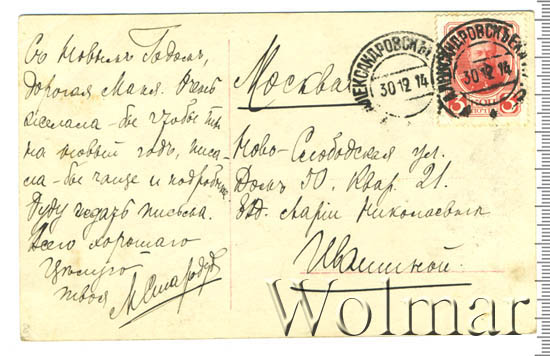 Съ Новымъ Годомъ,
дорогая Маня. Очень
желала-бы чтобы ты
на новый годъ, писа-
ла-бы чаще и подробнѣе.
Буду ждать письма.
Всего хорошаго
Цѣлую
твоя
Москва
Ново-Слободская ул.
Домъ 50. Квар. 21.
Маріи Николаевнѣ
АЛЕКСАНДРОВСКЪ
30 12 14
30 12 14
3 КОП 3
Wolmar